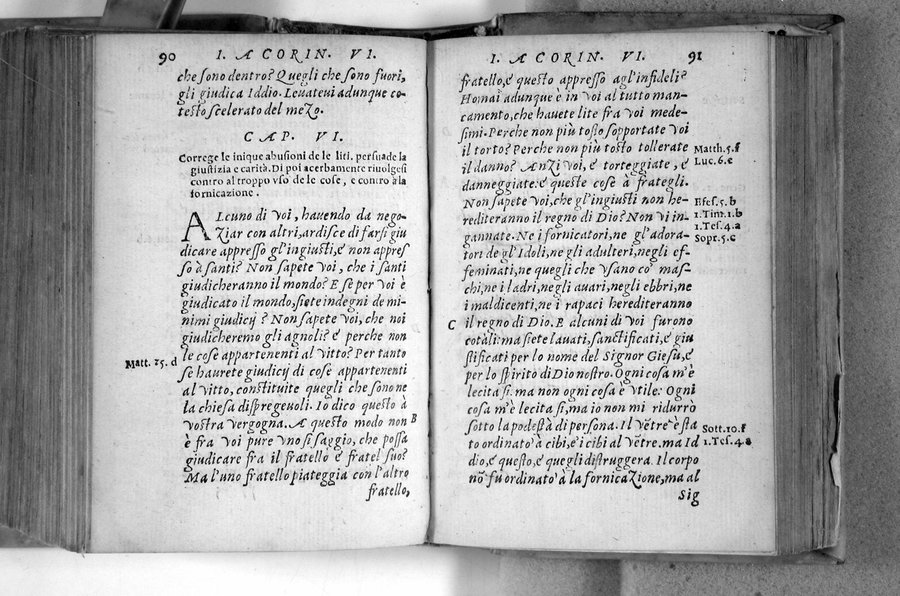 90 I. A CORIN. VI.
che sono dentro? Quegli che sono fuori,
gli giudica Iddio. Leuateui adunque co-
testo scelerato del mezo.
CAP. VI.
Correge le inique abusioni de le liti. persuade la
giustizia e carità. Di poi acerbamente riuolgesi
contro al troppo vso de le cose, e contro à la
fornicazione.
ALcuno di voi, hauendo da nego-
ziar con altri, ardisce di farsi giu
dicare appresso gl'ingiusti, e non appres
so à santi? Non sapete voi, che i santi
giudicheranno il mondo? E se per voi è
giudicato il mondo, siete indegni de mi-
nimi giudicij? Non sapete voi, che noi
giudicheremo gli agnoli? e perche non
le cose appartenenti al vitto? Per tanto
Matt. 25. d
se haurete giudicij di cose appartenenti
al vitto, constituite quegli che sono ne
la chiesa dispregeuoli. Io dico questo à
vostra vergogna. A questo modo non B
è fra voi pure vno sì saggio, che possa
giudicare fra il fratello e fratel suo?
Ma l'uno fratello piateggia con l'altro
fratello,
I. A CORIN. VI. 91
fratello, e questo appresso agl'infideli?
Homai adunque è in voi al tutto man-
camento, che hauete lite fra voi mede-
simi. Perche non più tosto sopportate voi
il torto? Perche non più tosto tollerate
Matth. 5. f
il danno? Anzi voi, e torteggiate, e
Luc. 6. e
danneggiate: e queste cose à frategli.
Non sapete voi, che gl'ingiusti non he-
Efes. 5. b
rediteranno il regno di Dio? Non vi in-
1. Tim. 1. b
gannate. Ne i fornicatori, ne gl'adora-
1. Tes. 4. a
tori de gl'Idoli, negli adulteri, negli ef-
Sopr. 5. c
feminati, ne quegli che vsano co' mas-
chi, ne i ladri, negli auari, negli ebbri, ne
i maldicenti, ne i rapaci herediteranno
C il regno di Dio. E alcuni di voi furono
cotali: ma siete lauati, sanctificati, e giu
stificati per lo nome del Signor Giesu, e
per lo spirito di Dio nostro. Ogni cosa m'è
lecita sì. ma non ogni cosa è vtile: Ogni
cosa m'è lecita sì, ma io non mi ridurrò
sotto la podestà di persona. Il vẽtre è sta
Sott. 10. f
to ordinato à cibi, e i cibi al vẽtre. ma Id
1. Tes. 4. a
dio, e questo, e quegli distruggera. Il corpo
nõ fu ordinato à la fornicazione, ma al
Sig